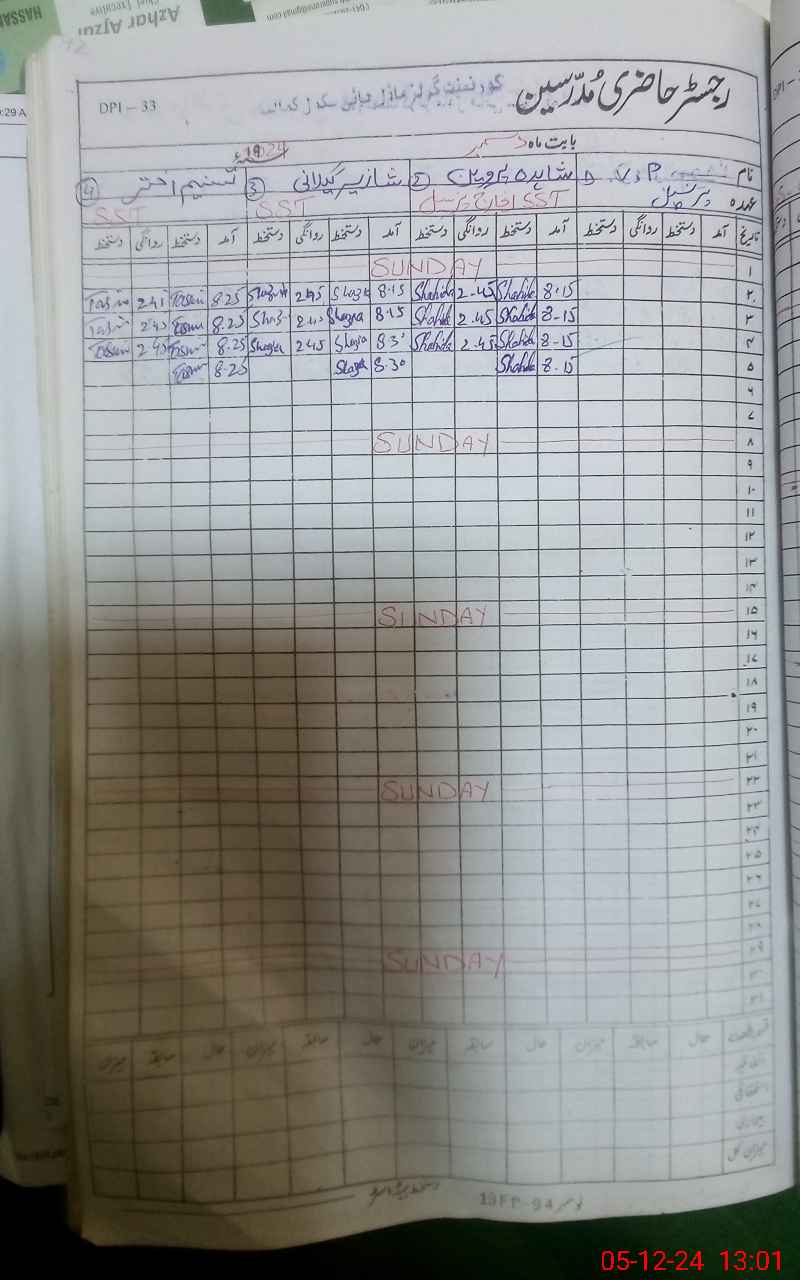 Azhar Ajzal
Chief Executive
HASSAN
:29 A
DPI – 33
رجسٹر حاضری مُدرّسین
گورنمنٹ گرلز ماڈل ہائی سکول
بابت ماہ دسمبر
2024
نام V.P ② شاہدہ پروین ③ شازیہ گیلانی ④ تسنیم اختر
عہدہ پرنسپل SST انچارج پرنسپل SST SST
تاریخ آمد دستخط روانگی دستخط آمد دستخط روانگی دستخط آمد دستخط روانگی دستخط آمد دستخط روانگی دستخط
۱ SUNDAY
۲ 8.15 Shahida 2.45 Shahida 8.15 Shazia 2.45 Shazia 8.25 Tasnim 2.45 Tasnim
۳ 8-15 Shahida 2.45 Shahida 8.15 Shazia 2.45 Shazia 8.25 Tasnim 2.45 Tasnim
۴ 8-15 Shahida 2.45 Shahida 8.30 Shazia 2.45 Shazia 8.25 Tasnim 2.45 Tasnim
۵ 8.15 Shahida 8.30 Shazia 8.25 Tasnim
۶
۷
۸ SUNDAY
۹
۱۰
۱۱
۱۲
۱۳
۱۴
۱۵ SUNDAY
۱۶
۱۷
۱۸
۱۹
۲۰
۲۱
۲۲ SUNDAY
۲۳
۲۴
۲۵
۲۶
۲۷
۲۸
۲۹ SUNDAY
۳۰
۳۱
حال سابقہ میزان حال سابقہ میزان حال سابقہ میزان حال سابقہ میزان
اتفاقی
بیماری
میزان کل
05-12-24 13:01